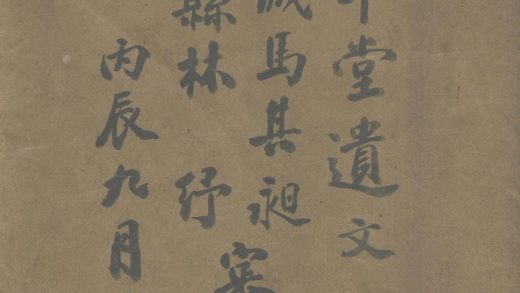 堂遺文
馬其昶
縣林紓
丙辰九月